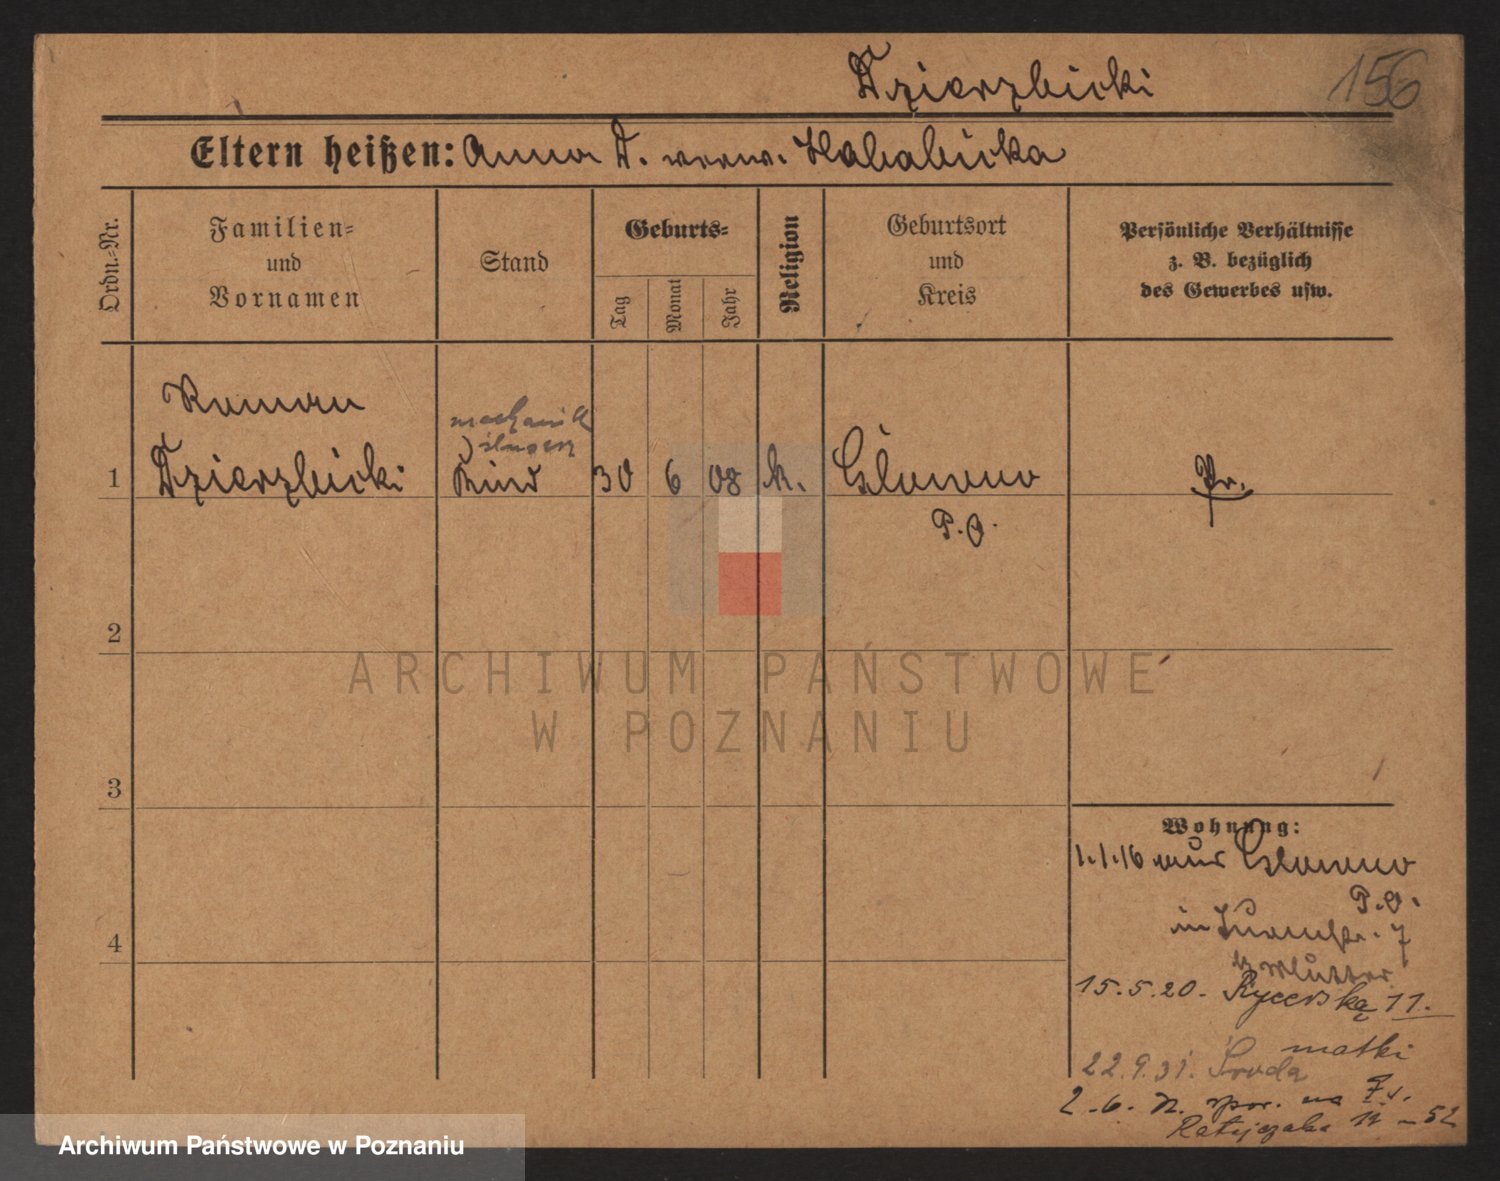 Dzierzbicki
156
Eltern heißen: Anna D. verw.
Ordn.-Nr.
Familien-
und
Vornamen
Stand
Geburts-
Tag
Monat
Jahr
Religion
Geburtsort
und
Kreis
Persönliche Verhältnisse
z. B. bezüglich
des Gewerbes usw.
Roman
mechanik
1 Dzierzbicki Kind 30 6 08 k. Glowno Pr.
P.O.
2
ARCHIWUM PAŃSTWOWE
W POZNANIU
3
Wohnung:
1.1.16 aus Glowno
P.O.
in Turmstr. 7
b. Mutter
15.5.20. Rycerska 11.
matki
22.9.31. Środa
4
2.6. na
Ratajczaka
Archiwum Państwowe w Poznaniu